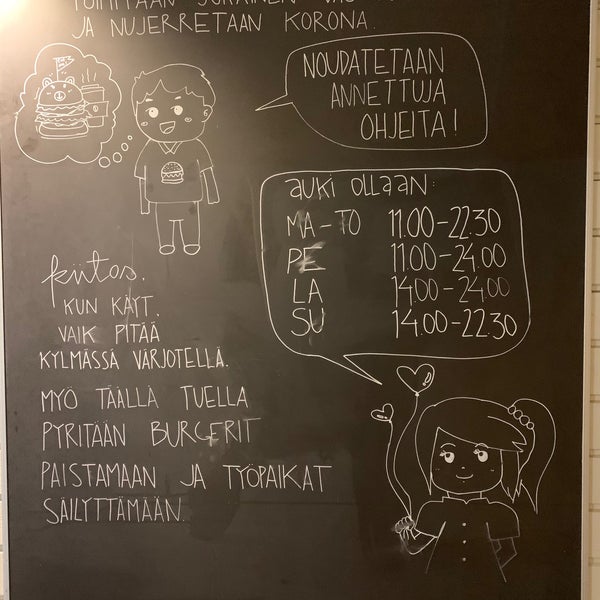 JA NUJERRETAAN KORONA.
NOUDATETAAN
ANNETTUJA
OHJEITA!
AUKI OLLAAN:
MA-TO 11.00-22.30
PE 11.00-24.00
LA 14.00-24.00
SU 14.00-22.30
kiitos.
KUN KÄYT.
VAIK PITÄÄ
KYLMÄSSÄ VARJOTELLÄ.
MYÖ TÄÄLLÄ TUELLA
PYRITÄÄN BURGERIT
PAISTAMAAN JA TYÖPAIKAT
SÄILYTTÄMÄÄN.